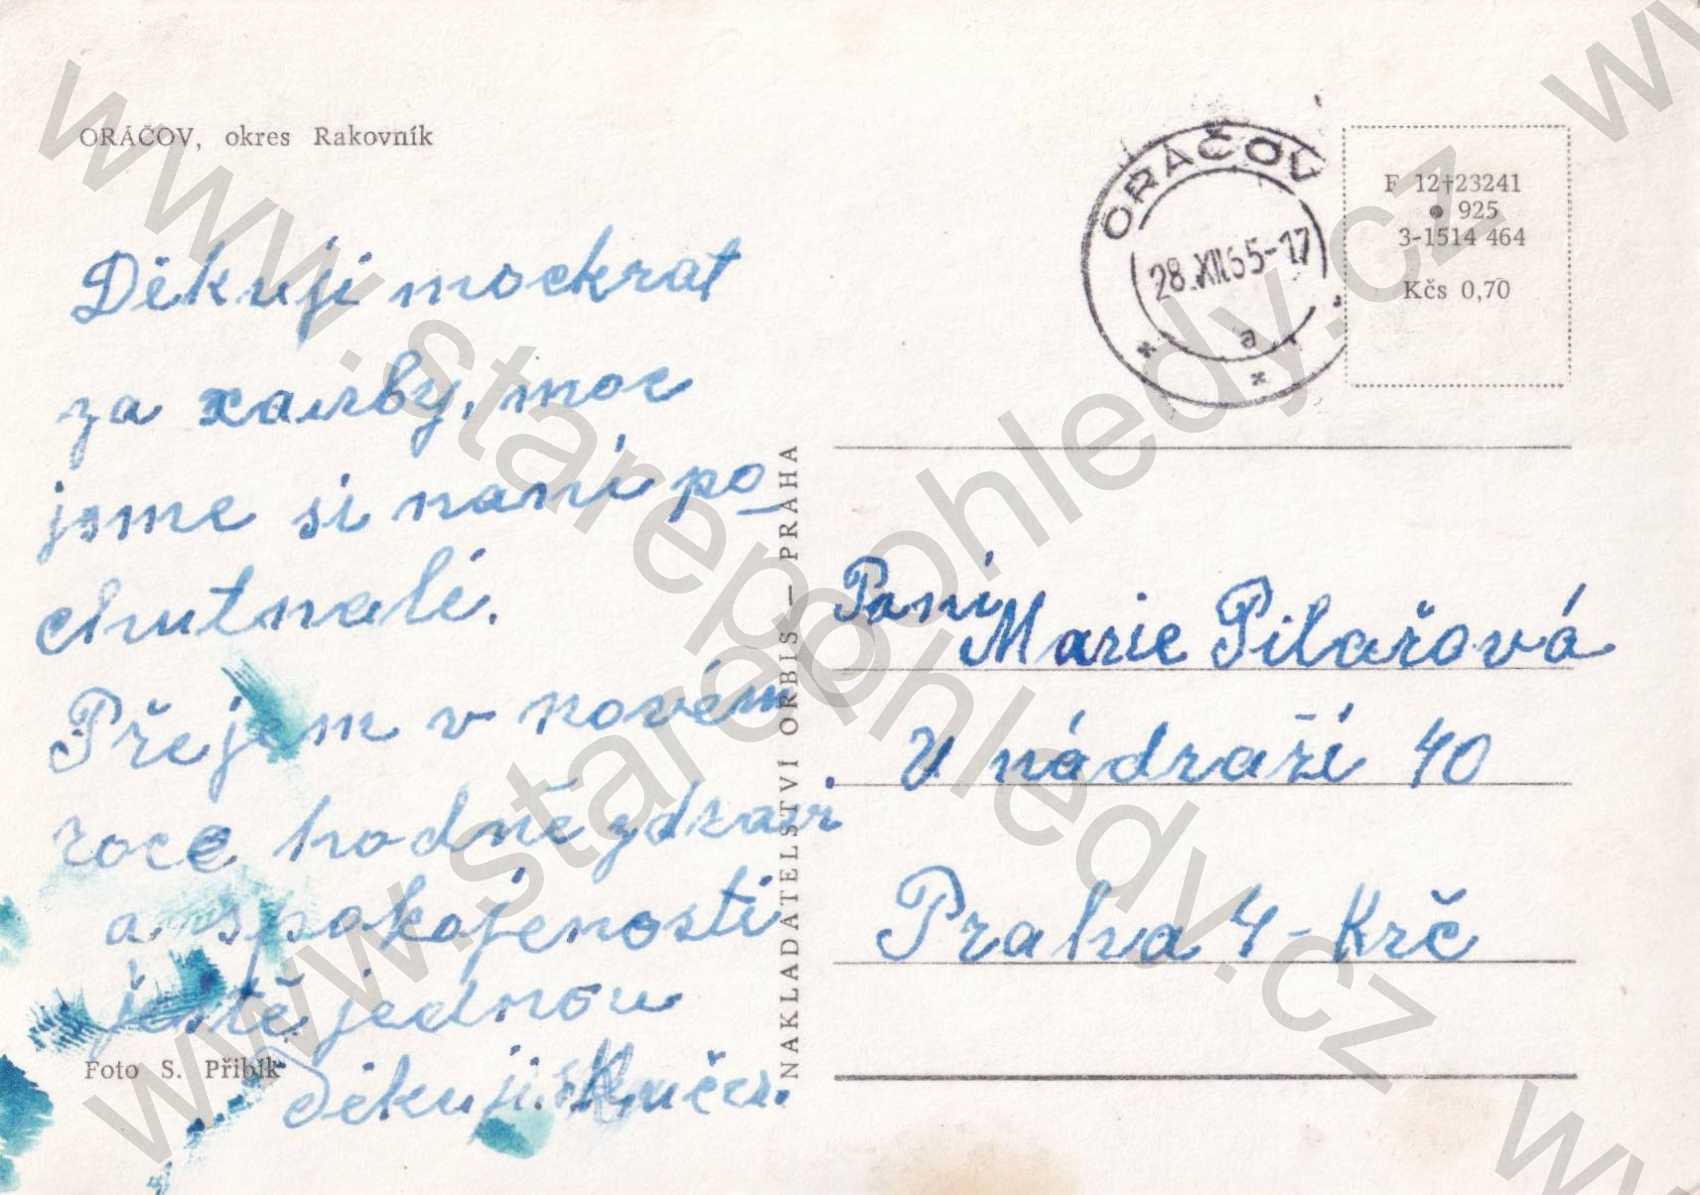 ORÁČOV, okres Rakovník
Děkuji mockrát
za xxurby, moc
jsme si nani po-
chutnali.
Přejem v novém
roce hodně zdraví
a spokojenosti
ještě jednou
děkuji. Kučer.
Foto S. Přibík
NAKLADATELSTVÍ ORBIS — PRAHA
ORÁČOV
28.XII.65-17
a
F 12†23241
● 925
3-1514 464
Kčs 0,70
Paní
Marie Pilařová
U nádraží 40
Praha 4 - Krč
www.starepohledy.cz
www.starepohledy.cz